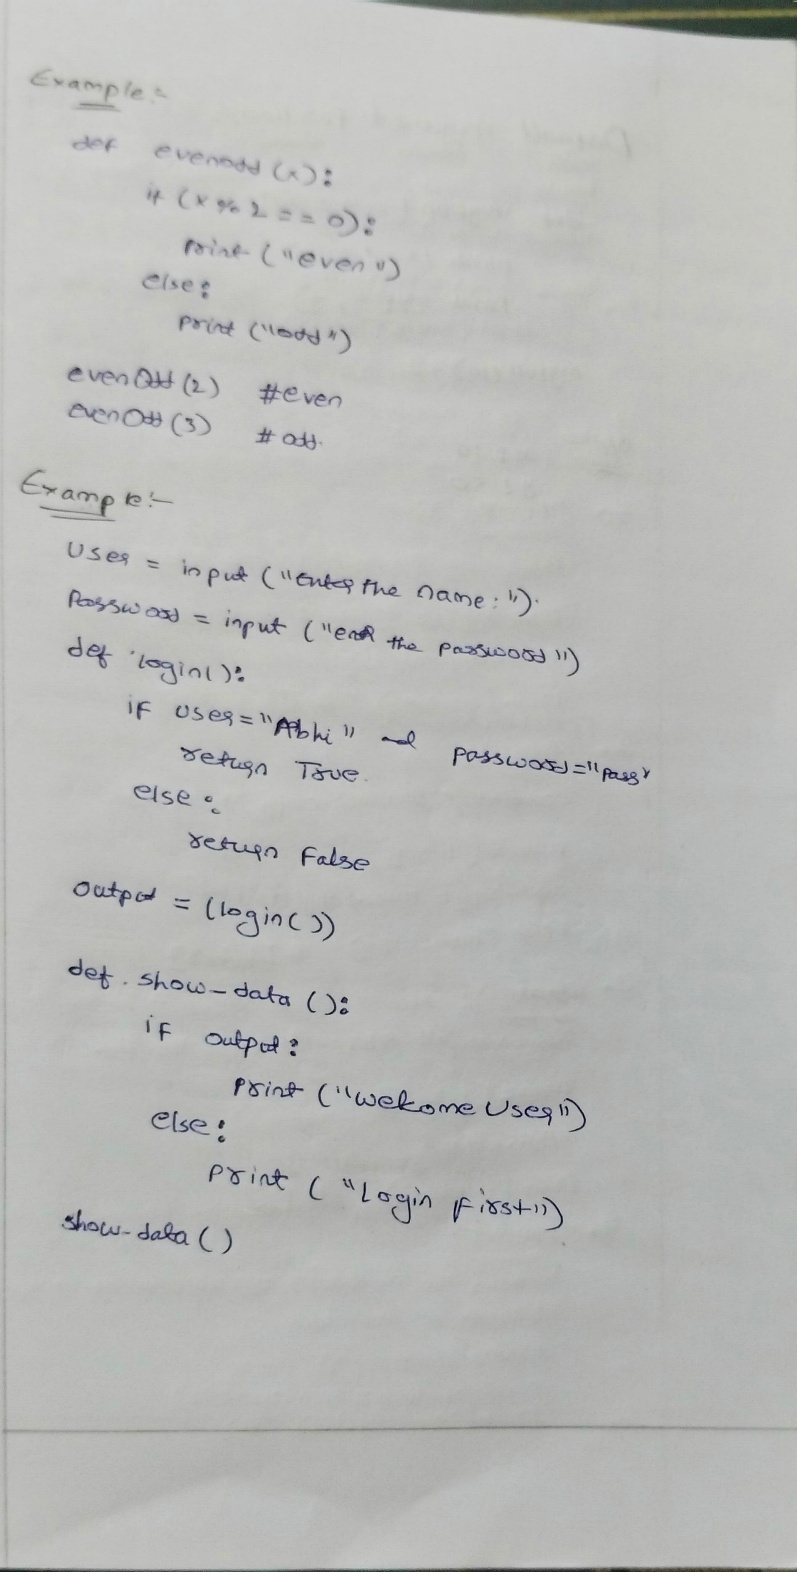 Example:-
def evenodd (x):
if (x % 2 == 0):
print ("even")
else:
print ("odd")
evenOdd (2) #even
evenOdd (3) # odd.
Example:-
User = input ("Enter the name: ").
Password = input ("enter the password")
def login():
if User = "Abhi" and password = "pass"
return True.
else:
return False
output = (login())
def show-data ():
if output:
print ("Welcome User")
else:
print ("Login First")
show-data ()